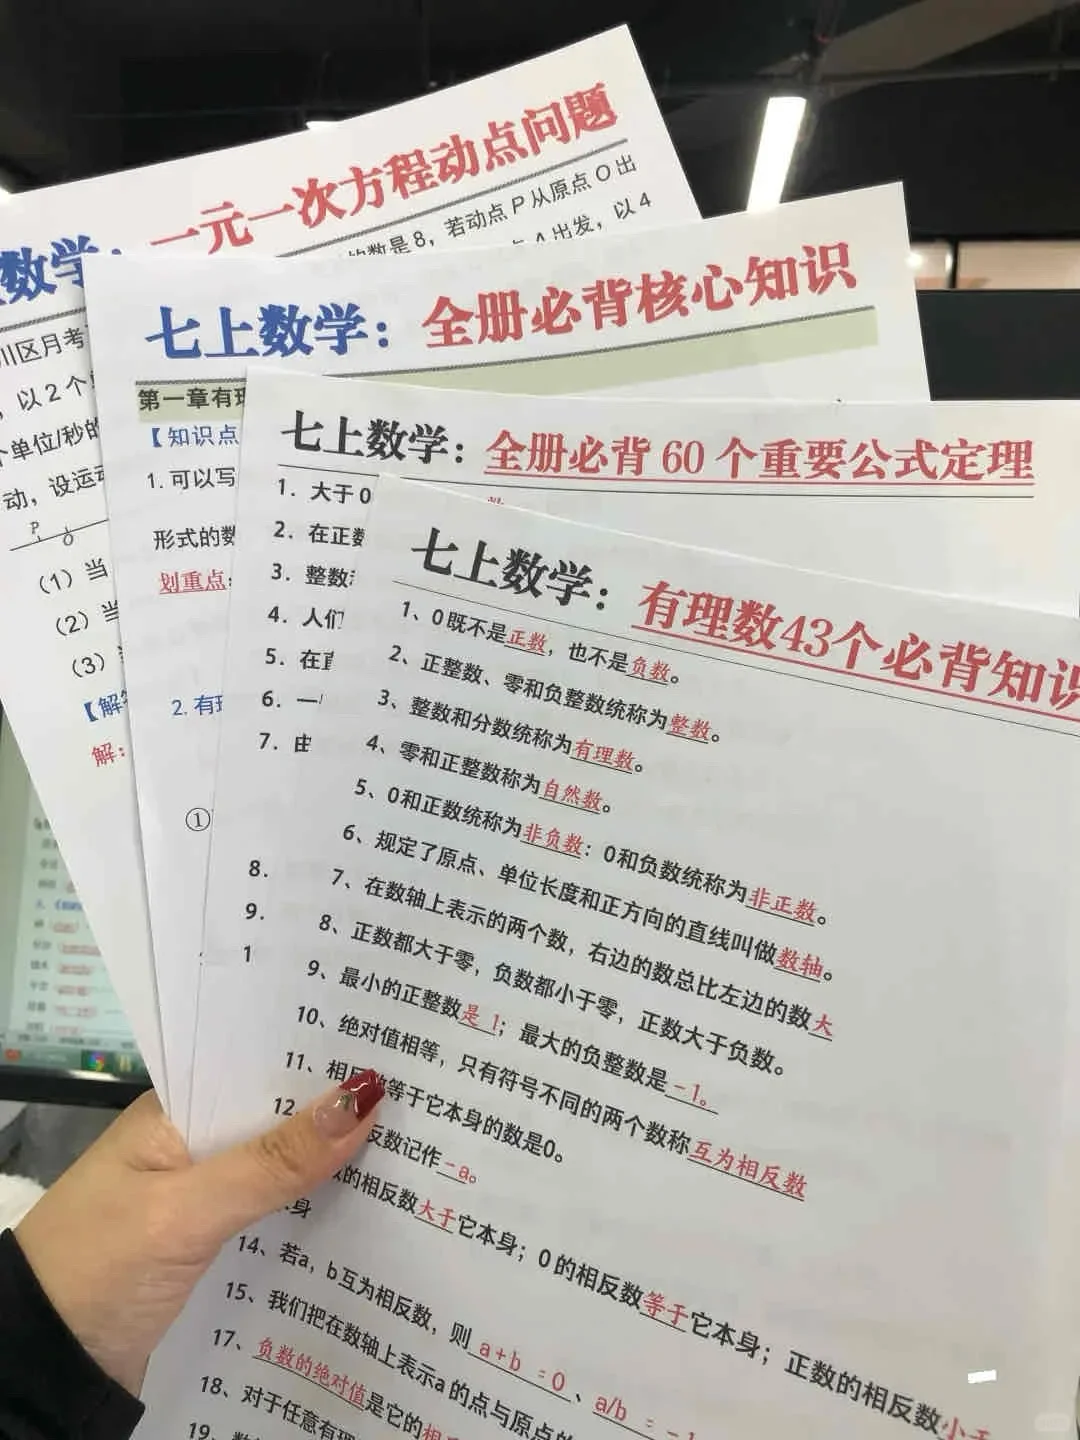 数学：一元一次方程动点问题
的数是8，若动点P从原点O出
出发，以4
川区月考
，以2个
个单位/秒的
动，设运动
P O
（1）当
（2）当
（3）
【解
解：
七上数学：全册必背核心知识
第一章有理
【知识点
1.可以写
形式的数
划重点：
2.有理
①
七上数学：全册必背60个重要公式定理
1. 大于0
2. 在正数
3. 整数
4. 人们
5. 在直
6. 一
7. 由
8.
9.
1
七上数学：有理数43个必背知识
1、0既不是正数，也不是负数。
2、正整数、零和负整数统称为整数。
3、整数和分数统称为有理数。
4、零和正整数称为自然数。
5、0和正数统称为非负数：0和负数统称为非正数。
6、规定了原点、单位长度和正方向的直线叫做数轴。
7、在数轴上表示的两个数，右边的数总比左边的数大
8、正数都大于零，负数都小于零，正数大于负数。
9、最小的正整数是 1；最大的负整数是-1。
10、绝对值相等，只有符号不同的两个数称互为相反数
11、相反数等于它本身的数是0。
12、反数记作-a。
的相反数大于它本身；0的相反数等于它本身；正数的相反数小于
本身
14、若a，b互为相反数，则a+b =0、a/b = -1
15、我们把在数轴上表示a的点与原点的
17、负数的绝对值是它的相反
18、对于任意有理
19、数